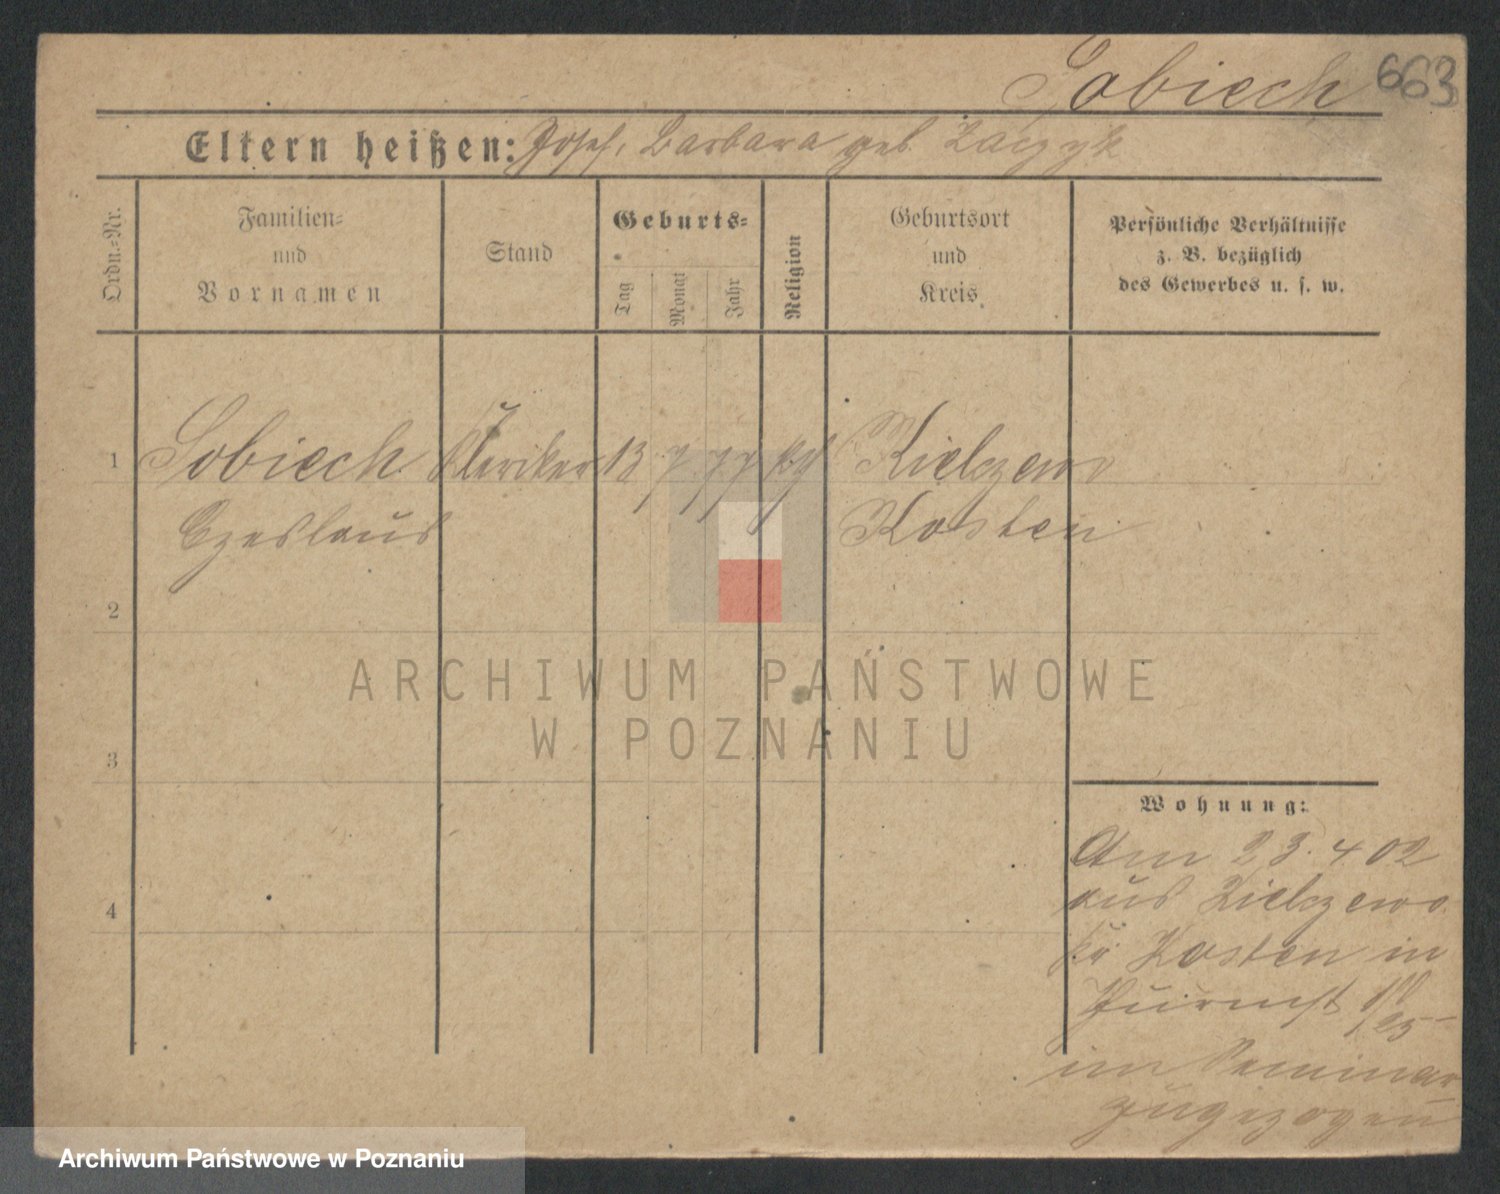 Sobiech 663
Eltern heißen: Josef, Barbara geb
Ordn.-Nr.
Familien-
und
Vornamen
Stand
Geburts-
Tag
Monat
Jahr
Religion
Geburtsort
und
Kreis
Persönliche Verhältnisse
z. B. bezüglich
des Gewerbes u. s. w.
1 Sobiech Kleriker 13 7 77 kth Kielczewo
Czeslaus Kosten
2
ARCHIWUM PAŃSTWOWE
W POZNANIU
3
Wohnung:
Am 23.4 02
4 aus Kielczewo
Kr Kosten in
im Seminar
zugezogen
Archiwum Państwowe w Poznaniu